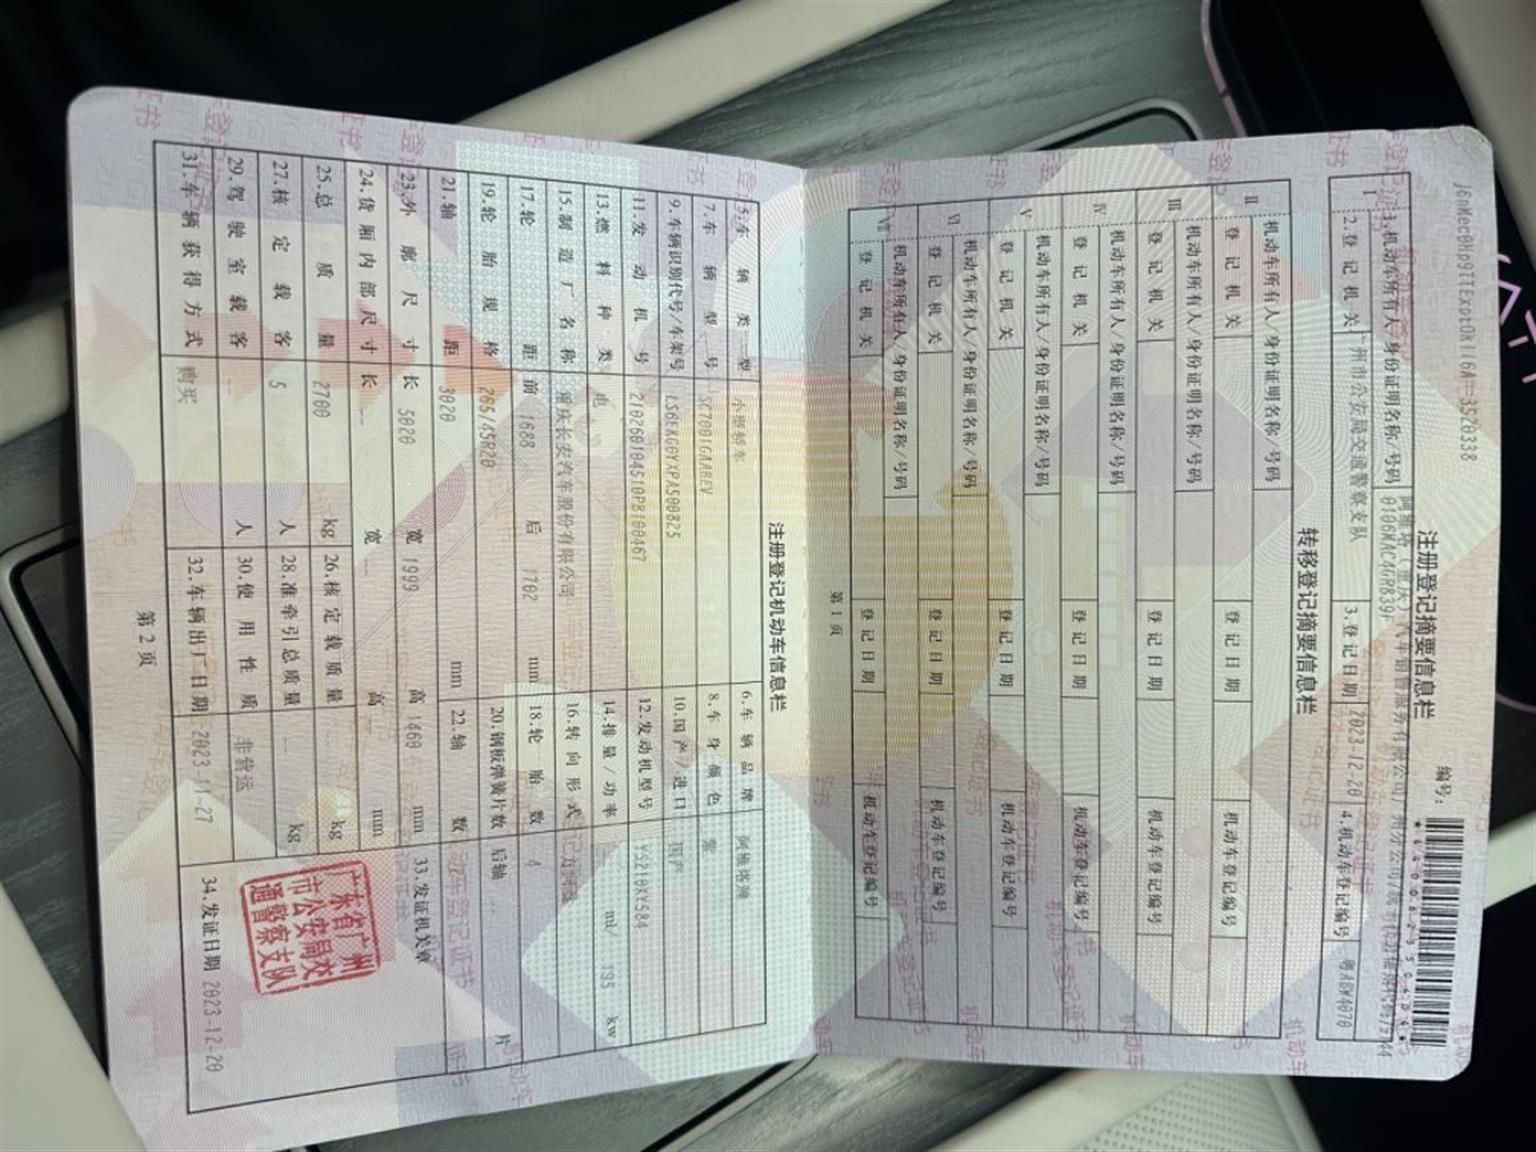 注册登记摘要信息栏
编号:
1.机动车所有人/身份证明名称/号码 阿维塔（重庆）汽车销售服务有限公司广州分公司/统一社会信用代码/9144
0106MAC4GR839F
2.登记机关 广州市公安局交通警察支队 3.登记日期 2023-12-20 4.机动车登记编号
转移登记摘要信息栏
II 机动车所有人/身份证明名称/号码
登记机关 登记日期 机动车登记编号
III 机动车所有人/身份证明名称/号码
登记机关 登记日期 机动车登记编号
IV 机动车所有人/身份证明名称/号码
登记机关 登记日期 机动车登记编号
V 机动车所有人/身份证明名称/号码
登记机关 登记日期 机动车登记编号
VI 机动车所有人/身份证明名称/号码
登记机关 登记日期 机动车登记编号
VII 机动车所有人/身份证明名称/号码
登记机关 登记日期 机动车登记编号
第1页
注册登记机动车信息栏
5.车辆类型 小型轿车 6.车辆品牌 阿维塔牌
7.车辆型号 SC7001GAABEV 8.车身颜色 紫
9.车辆识别代号/车架号 LS6EKG0YXPA500825 10.国产/进口 国产
11.发动机号 210260104510PB100467 12.发动机型号 YS210XYS84
13.燃料种类 电 14.排量/功率 ml/ 195 kw
15.制造厂名称 重庆长安汽车股份有限公司 16.转向形式 方向盘
17.轮距 前 1688 后 1702 mm 18.轮胎数 4
19.轮胎规格 265/45R20 20.钢板弹簧片数 后轴 -- 片
21.轴距 3020 mm 22.轴数
23.外廓尺寸 长 5020 宽 1999 高 1460 mm 33.发证机关章
24.货厢内部尺寸 长 -- 宽 -- 高 mm
25.总质量 2700 kg 26.核定载质量 -- kg
27.核定载客 5 人 28.准牵引总质量 -- kg
29.驾驶室载客 -- 人 30.使用性质 非营运
31.车辆获得方式 购买 32.车辆出厂日期 2023-11-27 34.发证日期 2023-12-20
广东省广州
市公安局交
通警察支队
第2页